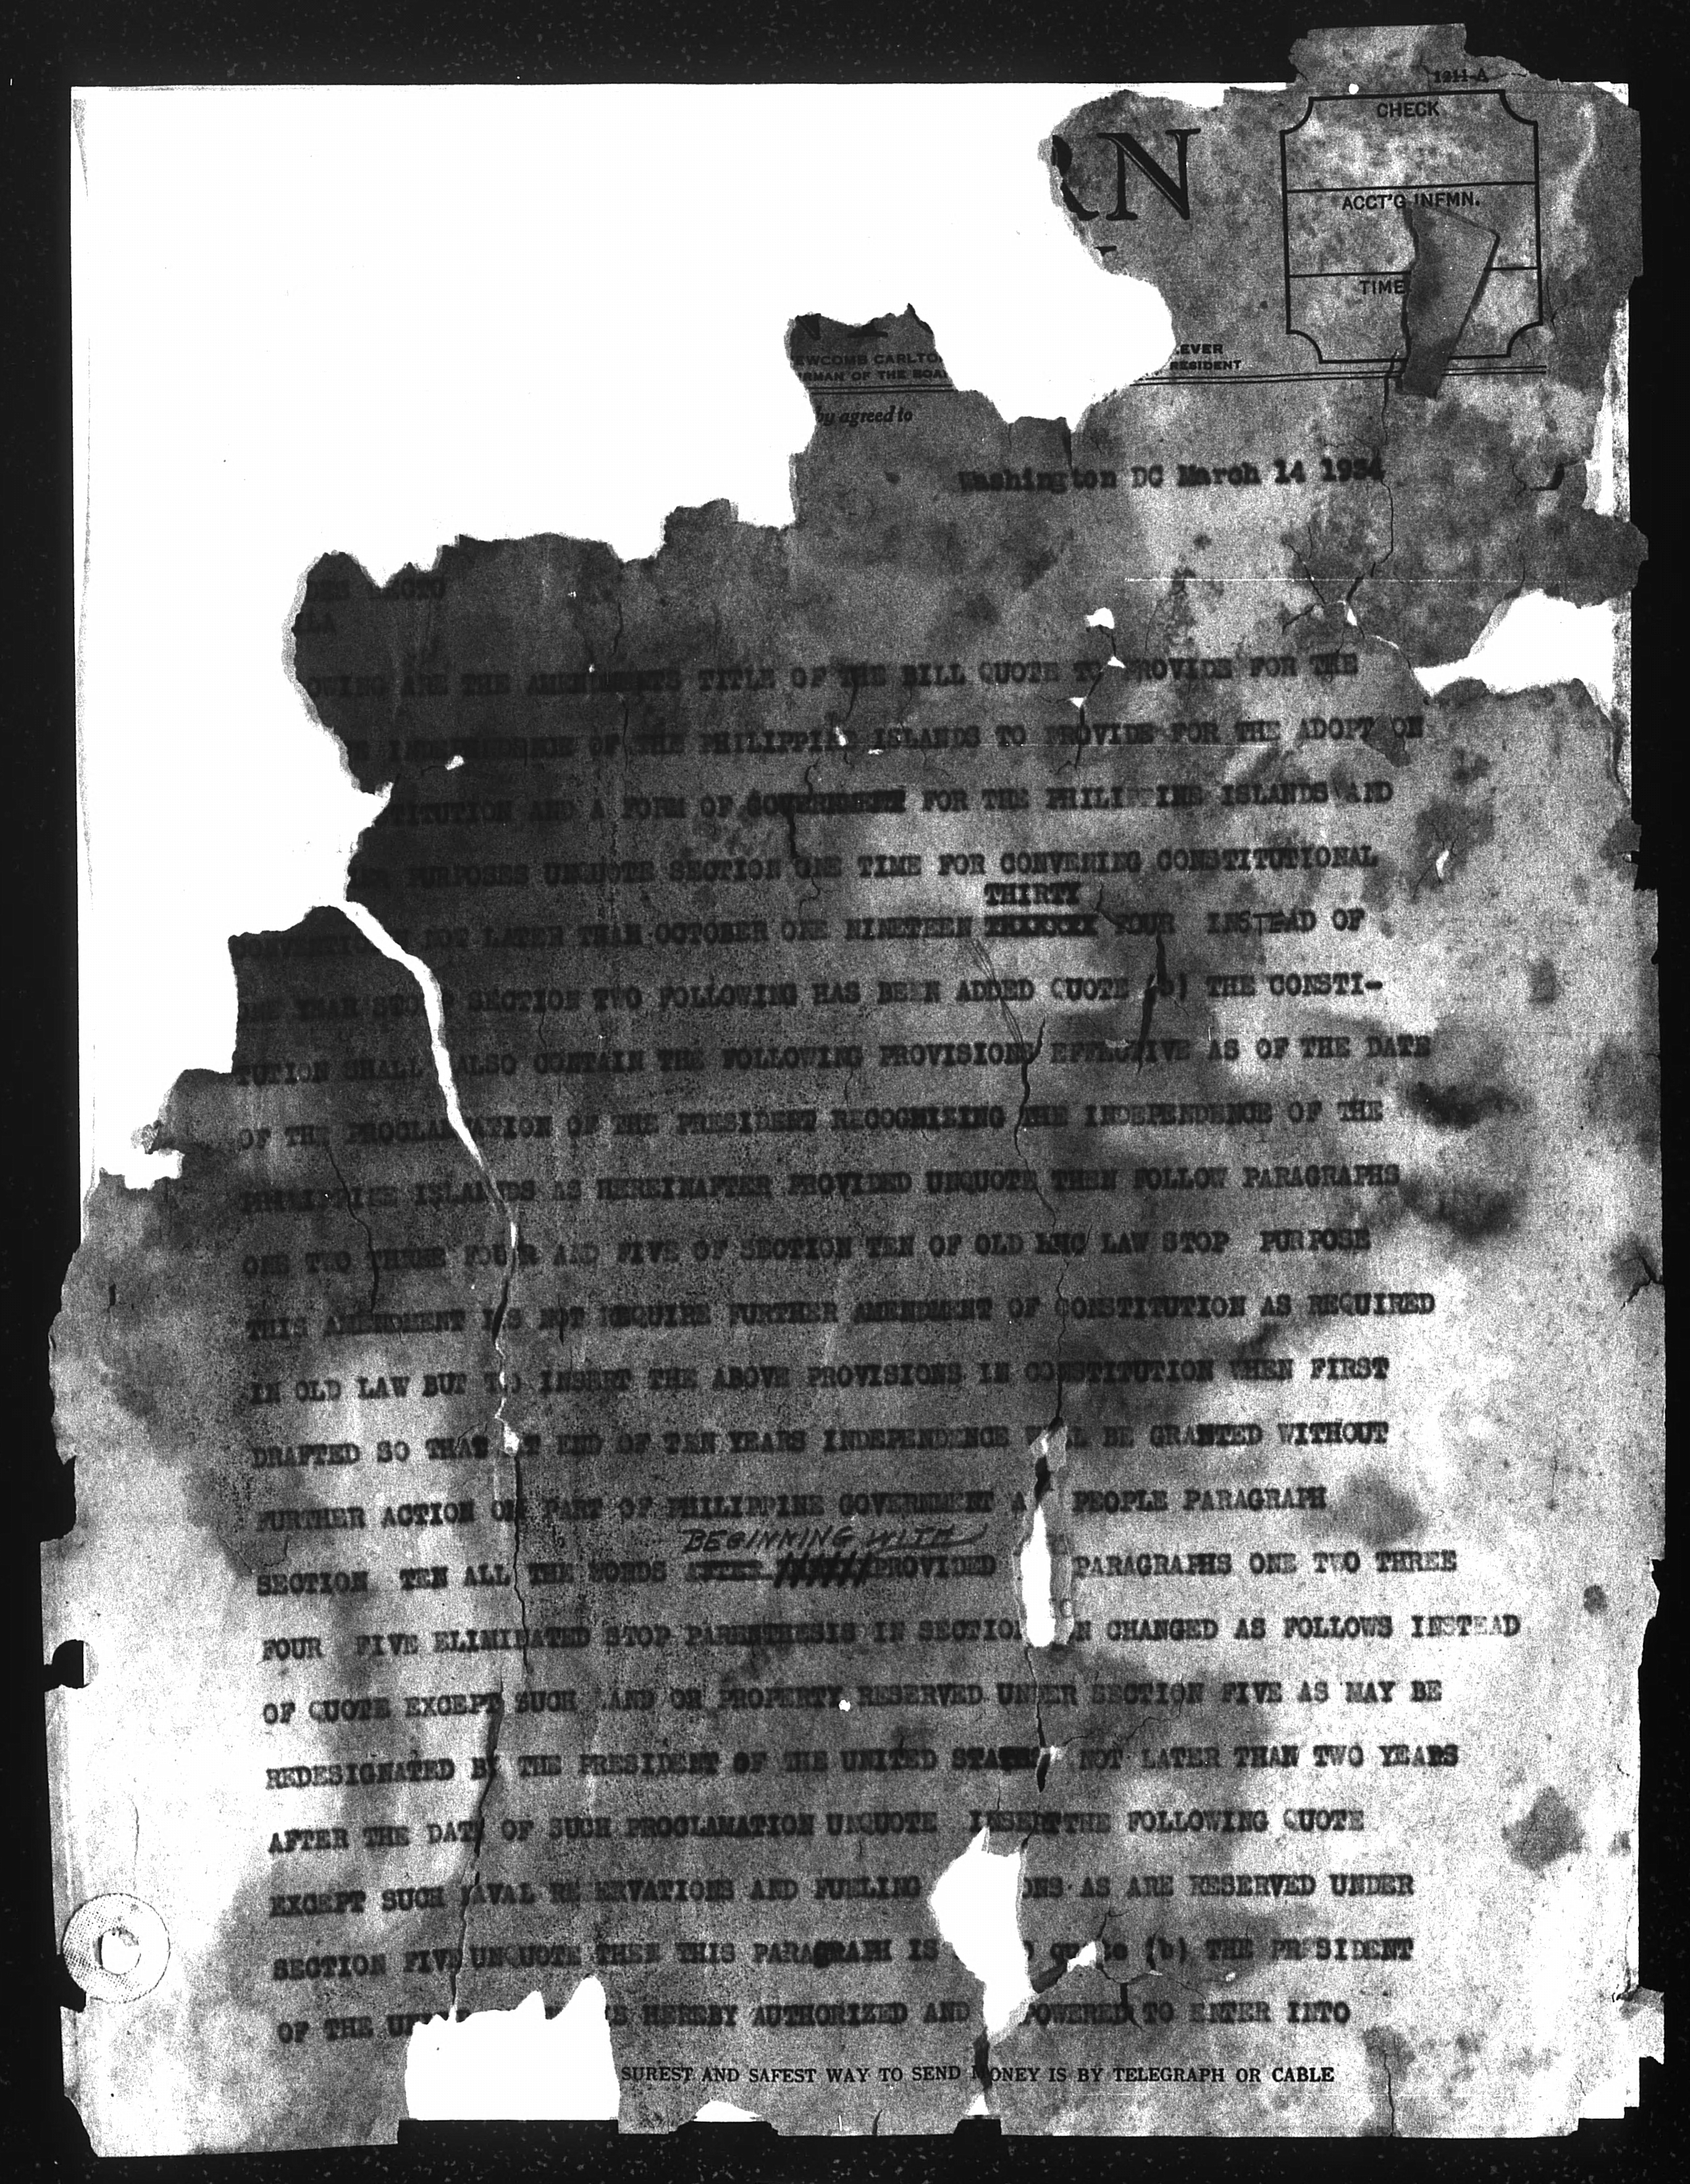 1211-A
CHECK
RN
ACCT'G INFMN.
TIME
EWCOMB CARLTO
RMAN OF THE BOA
EVER
RESIDENT
by agreed to
Washington DC March 14 1934
ECTO
LA
OWING ARE THE AMENDMENTS TITLE OF THE BILL QUOTE TO PROVIDE FOR THE
INDEPENDENCE OF THE PHILIPPINE ISLANDS TO PROVIDE FOR THE ADOPT ON
TITUTION AND A FORM OF GOVERNMENT FOR THE PHILIPPINE ISLANDS AND
ER PURPOSES UNQUOTE SECTION ONE TIME FOR CONVENING CONSTITUTIONAL
THIRTY
CONVENTION NOT LATER THAN OCTOBER ONE NINETEEN XXXXXXX FOUR INSTEAD OF
ONE YEAR STOP SECTION TWO FOLLOWING HAS BEEN ADDED QUOTE (b) THE CONSTI-
TUTION SHALL ALSO CONTAIN THE FOLLOWING PROVISIONS EFFECTIVE AS OF THE DATE
OF THE PROCLAMATION OF THE PRESIDENT RECOGNIZING THE INDEPENDENCE OF THE
PHILIPPINE ISLANDS AS HEREINAFTER PROVIDED UNQUOTE THEN FOLLOW PARAGRAPHS
ONE TWO THREE FOUR AND FIVE OF SECTION TEN OF OLD HHC LAW STOP PURPOSE
THIS AMENDMENT IS NOT REQUIRE FURTHER AMENDMENT OF CONSTITUTION AS REQUIRED
IN OLD LAW BUT TO INSERT THE ABOVE PROVISIONS IN CONSTITUTION WHEN FIRST
DRAFTED SO THAT AT END OF TEN YEARS INDEPENDENCE L BE GRANTED WITHOUT
FURTHER ACTION ON PART OF PHILIPPINE GOVERNMENT A PEOPLE PARAGRAPH
BEGINNING WITH
SECTION TEN ALL THE WORDS PROVIDED PARAGRAPHS ONE TWO THREE
FOUR FIVE ELIMINATED STOP PARENTHESIS IN SECTION N CHANGED AS FOLLOWS INSTEAD
OF QUOTE EXCEPT SUCH LAND OR PROPERTY RESERVED UNDER SECTION FIVE AS MAY BE
REDESIGNATED BY THE PRESIDENT OF THE UNITED STATES NOT LATER THAN TWO YEARS
AFTER THE DATE OF SUCH PROCLAMATION UNQUOTE INSERT THE FOLLOWING QUOTE
EXCEPT SUCH NAVAL RESERVATIONS AND FUELING ONS AS ARE RESERVED UNDER
SECTION FIVE UNQUOTE THEN THIS PARAGRAPH IS quote (b) THE PRESIDENT
OF THE UN HEREBY AUTHORIZED AND POWERED TO ENTER INTO
SUREST AND SAFEST WAY TO SEND MONEY IS BY TELEGRAPH OR CABLE